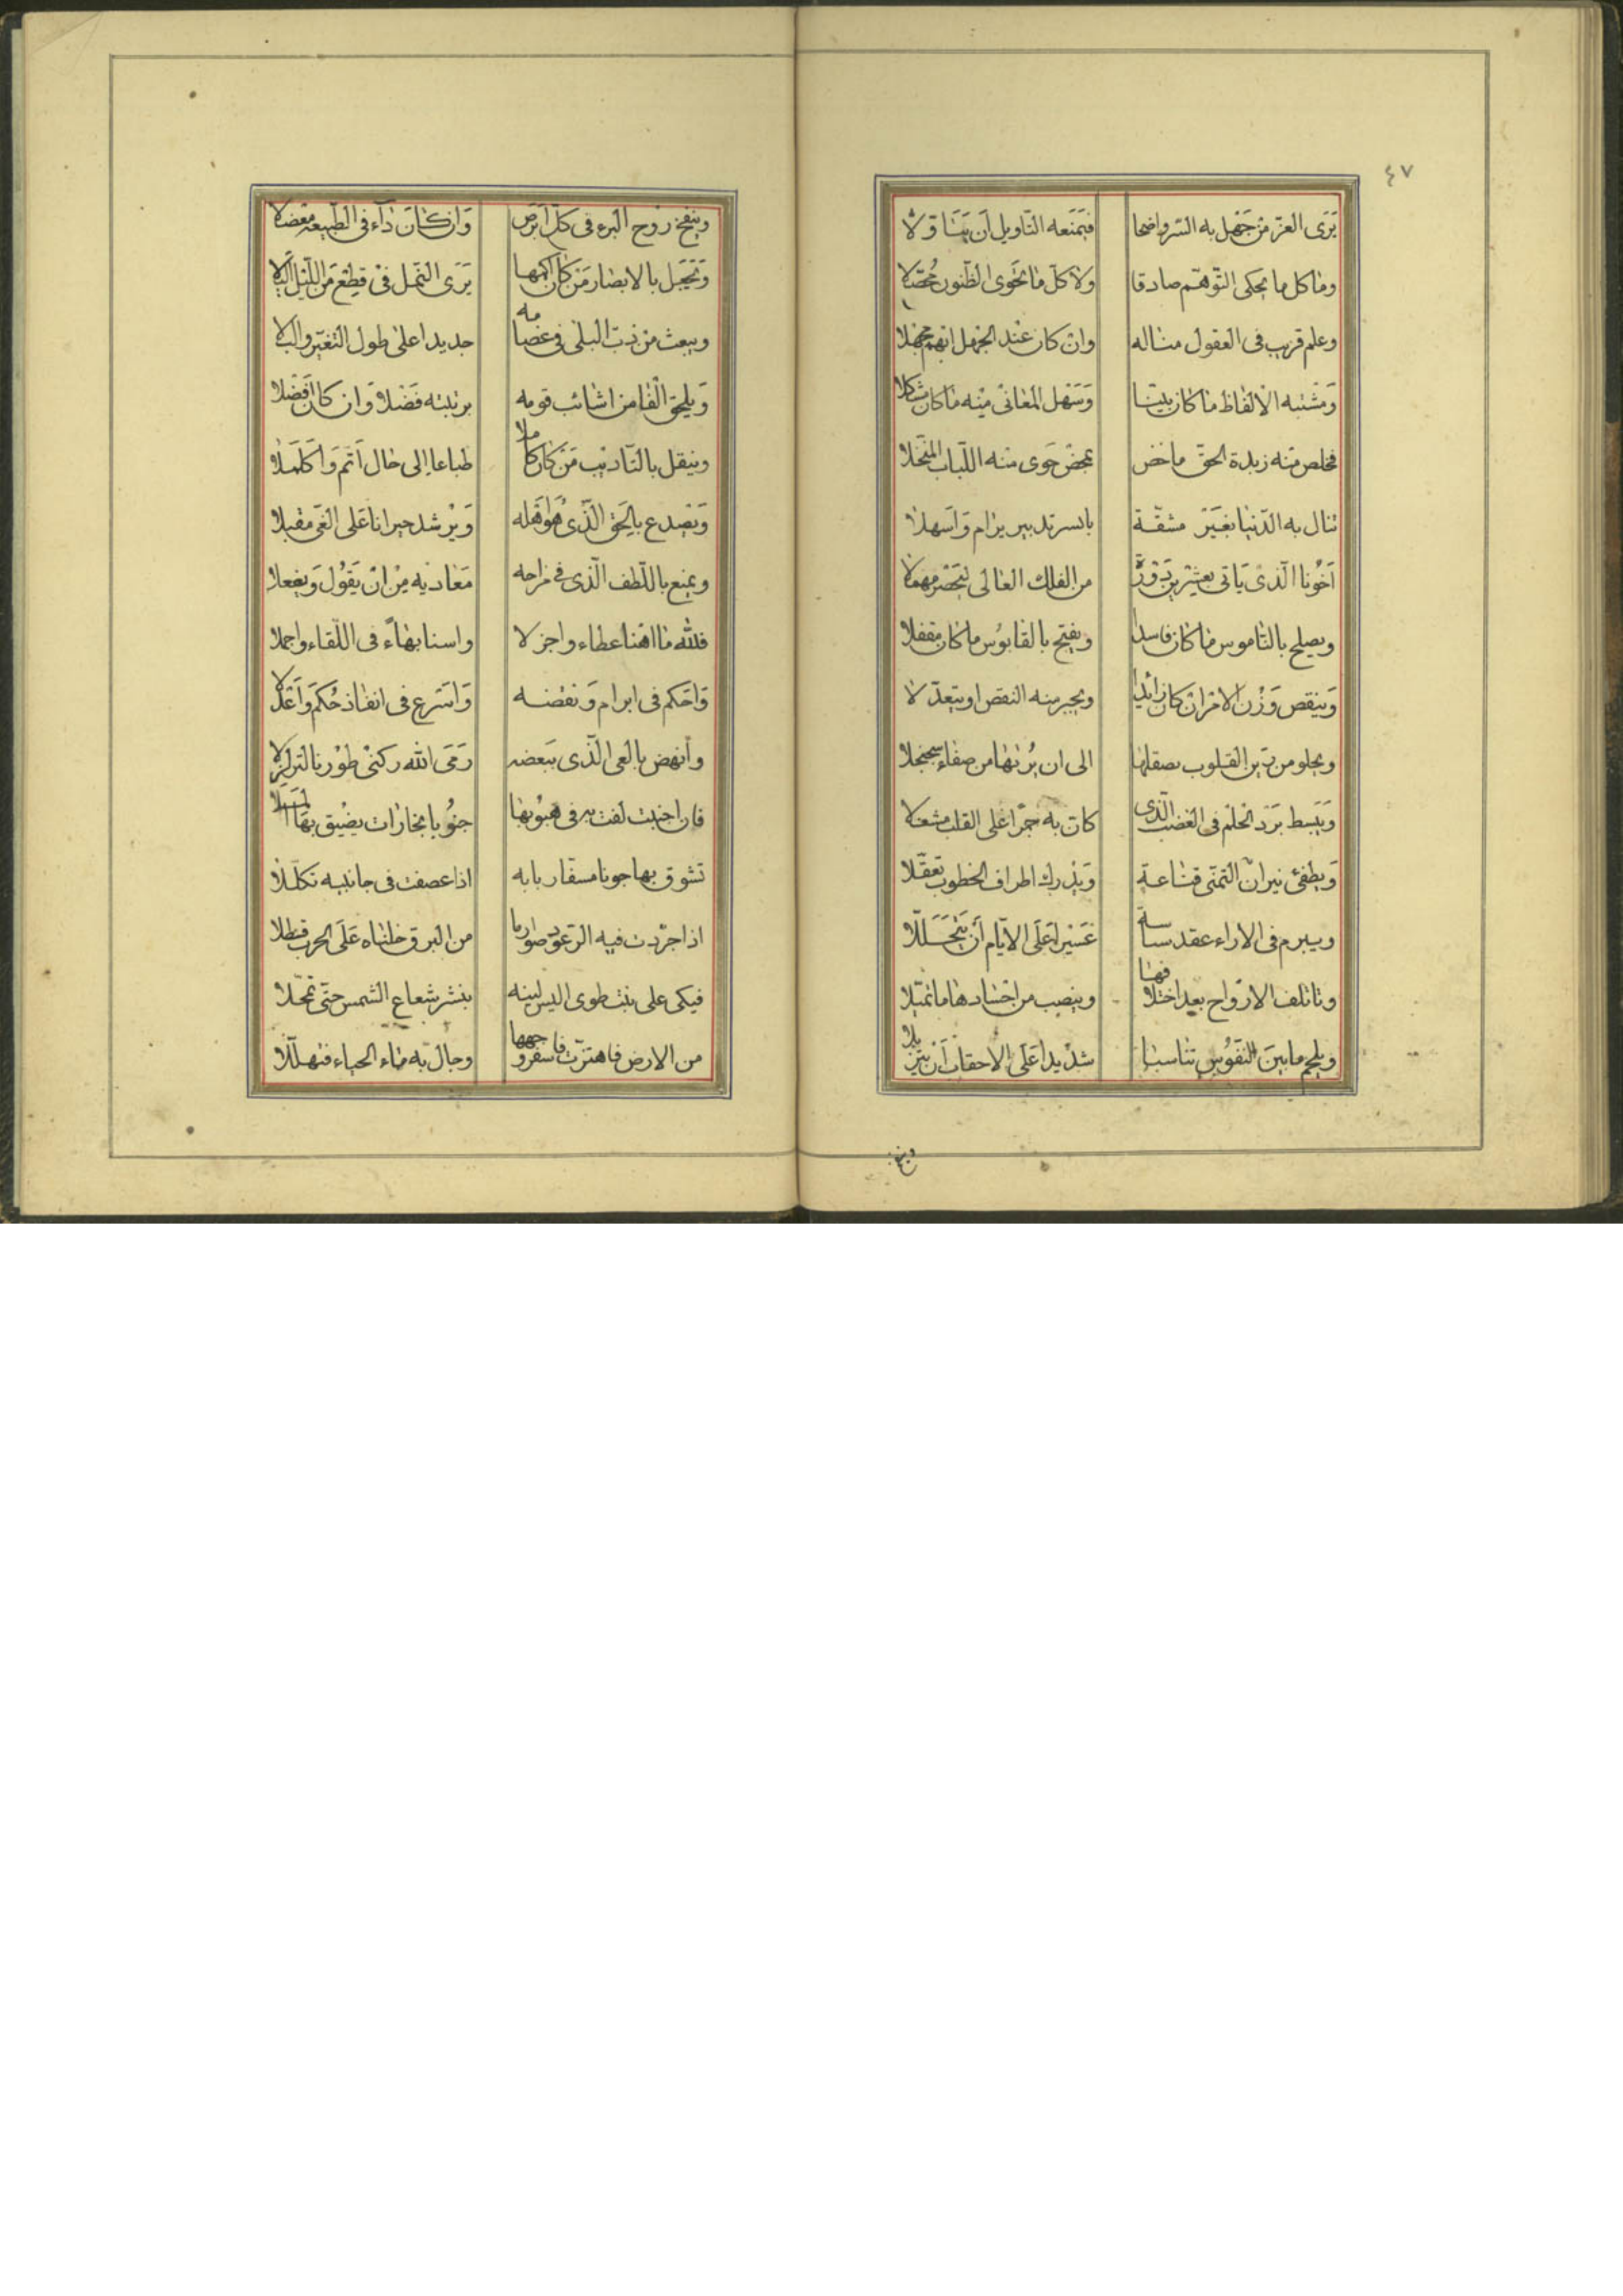 ٤٧
يَرَى العز من جَهْل به السّر واضحا فيَمنَعه التاويل أن يَتَاوّلا
وما كل ما يحكى التوهّم صادقا ولا كلّ ما تحوى الظنون محصّلا
وعلم قريب فى العقول مناله وان كان عند الجهل
وَمشتبه الالفاظ ما كان بيّنا وَسَهل المعانى منه ما كان مشكلا
فخلص منه زبدة الحق ماخض بمخض حَوى منه اللّباب المنخّلا
تنال به الدّنيا بغَيْر مشقّة بايسر تدبير يرام وَاسهلا
اَخُونا الّذى يَاتى من الفلك العالى
ويصلح بالنّاموس ما كان فاسدا ويفتح بالقابوس ما كان مقفلا
وَينقص وَزْن الامْر ان كان زائدا ويجبر منه النقص او يتعدّلا
ويجلو من رَين القلوب بصقلها الى ان يُرئها من صفاء سجنجلا
وَيَبسط بَرَد الحلْم فى الغضب الّذى كان به جمرا على القلب مشعلا
وَيطفئ نيران التمنّى قناعة وَيدرك اطراف الخطوب تعقّلا
ويبرم فى الاراء عقد سياسة عَسْيرا عَلَى الايّام أَن يَتَحَلَّلا
وتاتلف الارْواح بعد اختلافها وينصب من اجسادها ما تميّلا
ويلحم ما بينَ النّفوُس تناسبا شدْيدا عَلَى الاحقاب اَنْ يتزيّلا
وينفخ
وينفخ رُوح البرء فى كلّ اَبرَص وَان كانَ دَآء فى الطّبيعة معضلا
وَتَكحَل بالابصار مَنْ كان اكمها يَرَى النّمل فى قِطْع مَن اللّيْل اَليلا
ويبعث منْ ذبّ البلى فى عضامه جديدا على طول التغيّر والبلا
وَيلحق الفا من اشائب قومه برتبته فَضلا وَان كان اَفضلا
وينقل بالتّاديب مَنْ كان كاملا طباعا الى حال اَتمّ وَاَكملا
وَيَصدع بالحَق الّذى هُوَ اَهله وَيُرْشد حيرانا عَلى الغَى مقبلا
ويمنع باللّطف الّذى فى مزاجه مَعاديه مِنْ انْ يَقُول وَيفعلا
فلله ما اهنا عطاء واجزلا واسنا بهاءً فى اللّقاء واجملا
وَاَحكم فى ابرام وَنقضه وَاَسَرع فى انفاذ حُكم وَاَعْدَلا
وأنهض بالعى الّذى بَبَعضه رَمَى الله ركنىْ طوْرنا لتزلزلا
فان اجنبت لفت به فى هبُوبها جنُوبا بمخازات يضْيق بهَا
تشوق بها جونا مسفّا ربابه اذا عصفت فى جانبيه تكلّلا
اذا جرّدت فيه الرّعود صوارما من البرق خلناه عَلَى الحرب قسطلا
فيبكى على بنت طوى اليبس لينه بنشر شعاع الشمس حتّى تمحّلا
من الارض فاهتزّت فاسفر وجهها وجال به ماء الحياء فتهلّلا